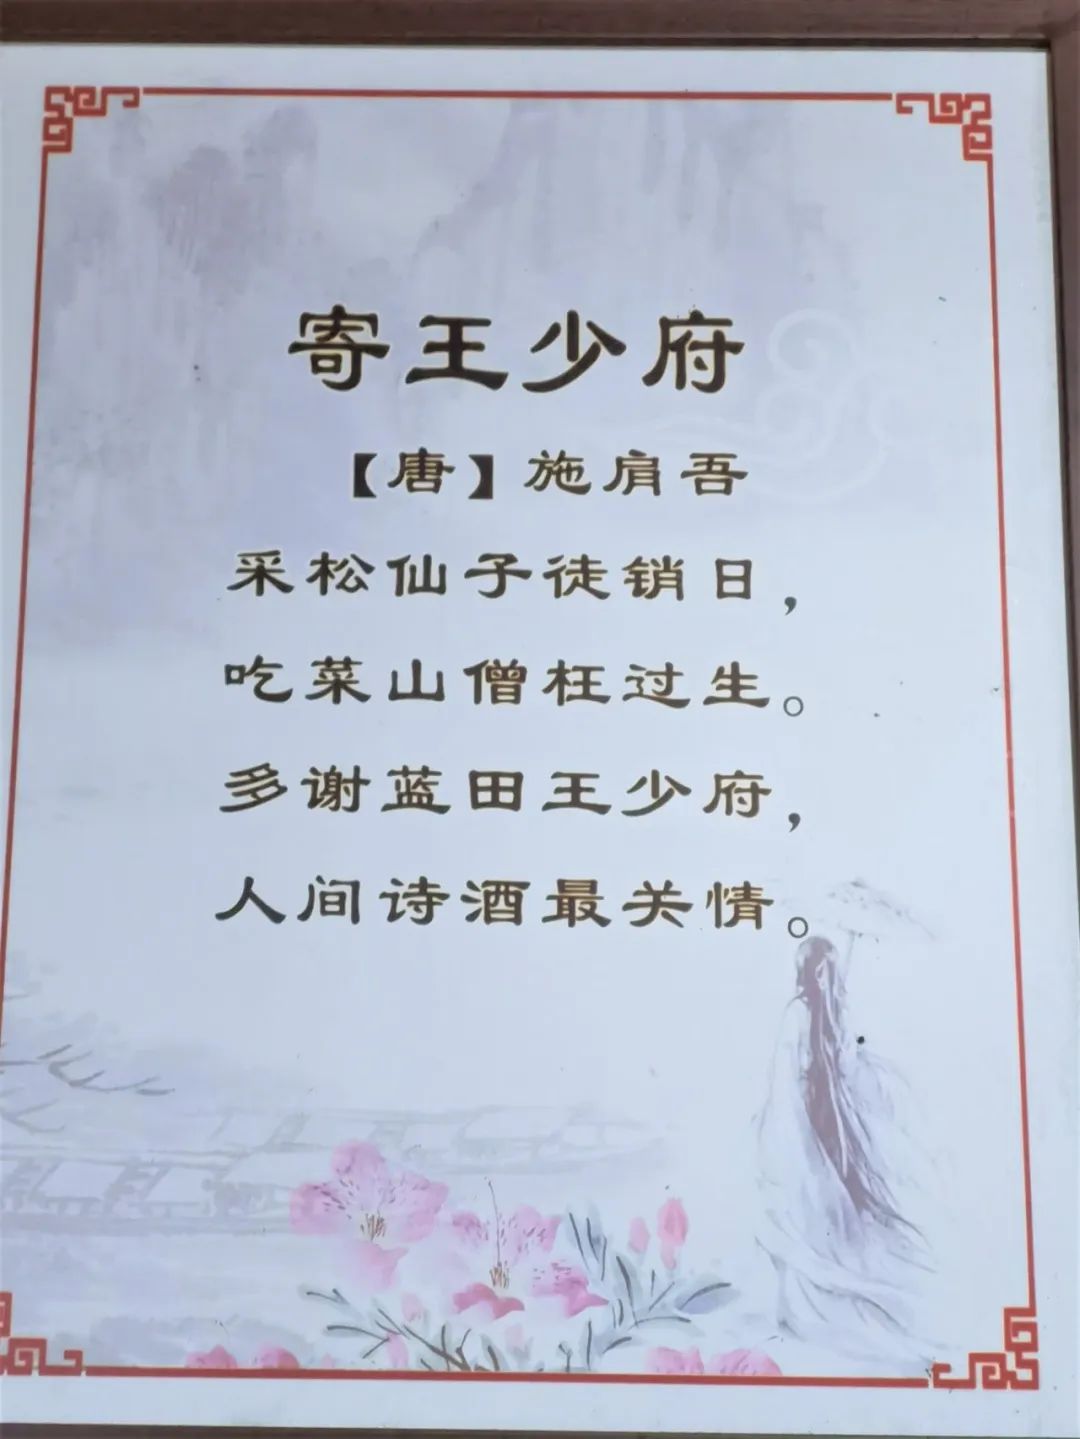 寄王少府
【唐】施肩吾
采松仙子徒销日，
吃菜山僧枉过生。
多谢蓝田王少府，
人间诗酒最关情。